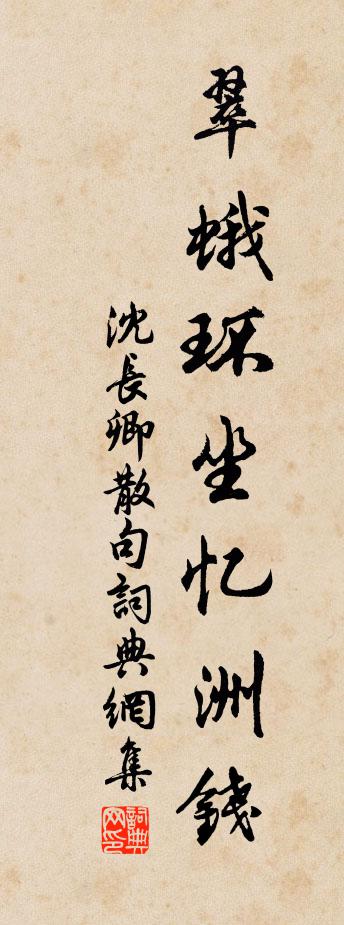 翠蛾环坐忆洲钱
沈長卿散句詞典網集
詞典
网印